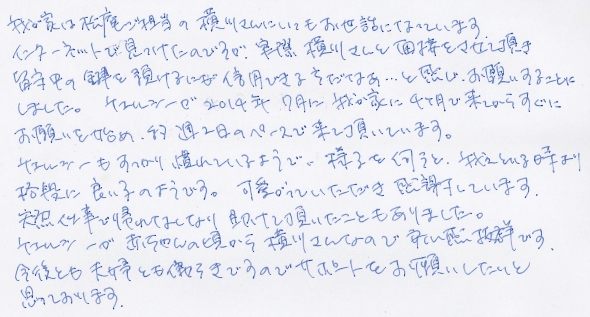 我が家は松庵ご担当の横川さんにいつもお世話になっています。
インターネットで見つけたのですが、実際横川さんと面接をさせて頂き
留守中の鍵を預けるにが信用できる方だなあ…と感じ、お願いすることに
しました。 チェルシーが2014年7月に我が家に4ヶ月で来てからすぐに
お願いを始め、約週2日のペースで来て頂いています。
チェルシーもすっかり慣れているようで、様子を伺うと、我々といる時より
格段に良い子のようです。 可愛がっていただき感謝しています。
突然仕事で帰れなくなり助けて頂いたこともありました。
チェルシーが赤ちゃんの頃から横川さんなので安心感抜群です。
今後とも夫婦とも働きですのでサポートをお願いしたいと
思っております。